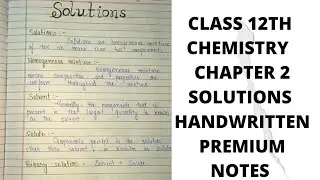 Solutions
Solutions :-
Solutions are homogeneous mixture
of two or more than two component.
Homogeneous mixture :-
Homogeneous mixture
means composition and properties are
uniform throughout the mixture.
Solvent :-
Generally the component that is
present in the largest quantity is known
as the solvent.
Solute :-
Components present in the solution
other than solvent is known as Solute
Binary solution = Solvent + Solute
CLASS 12TH
CHEMISTRY
CHAPTER 2
SOLUTIONS
HANDWRITTEN
PREMIUM
NOTES